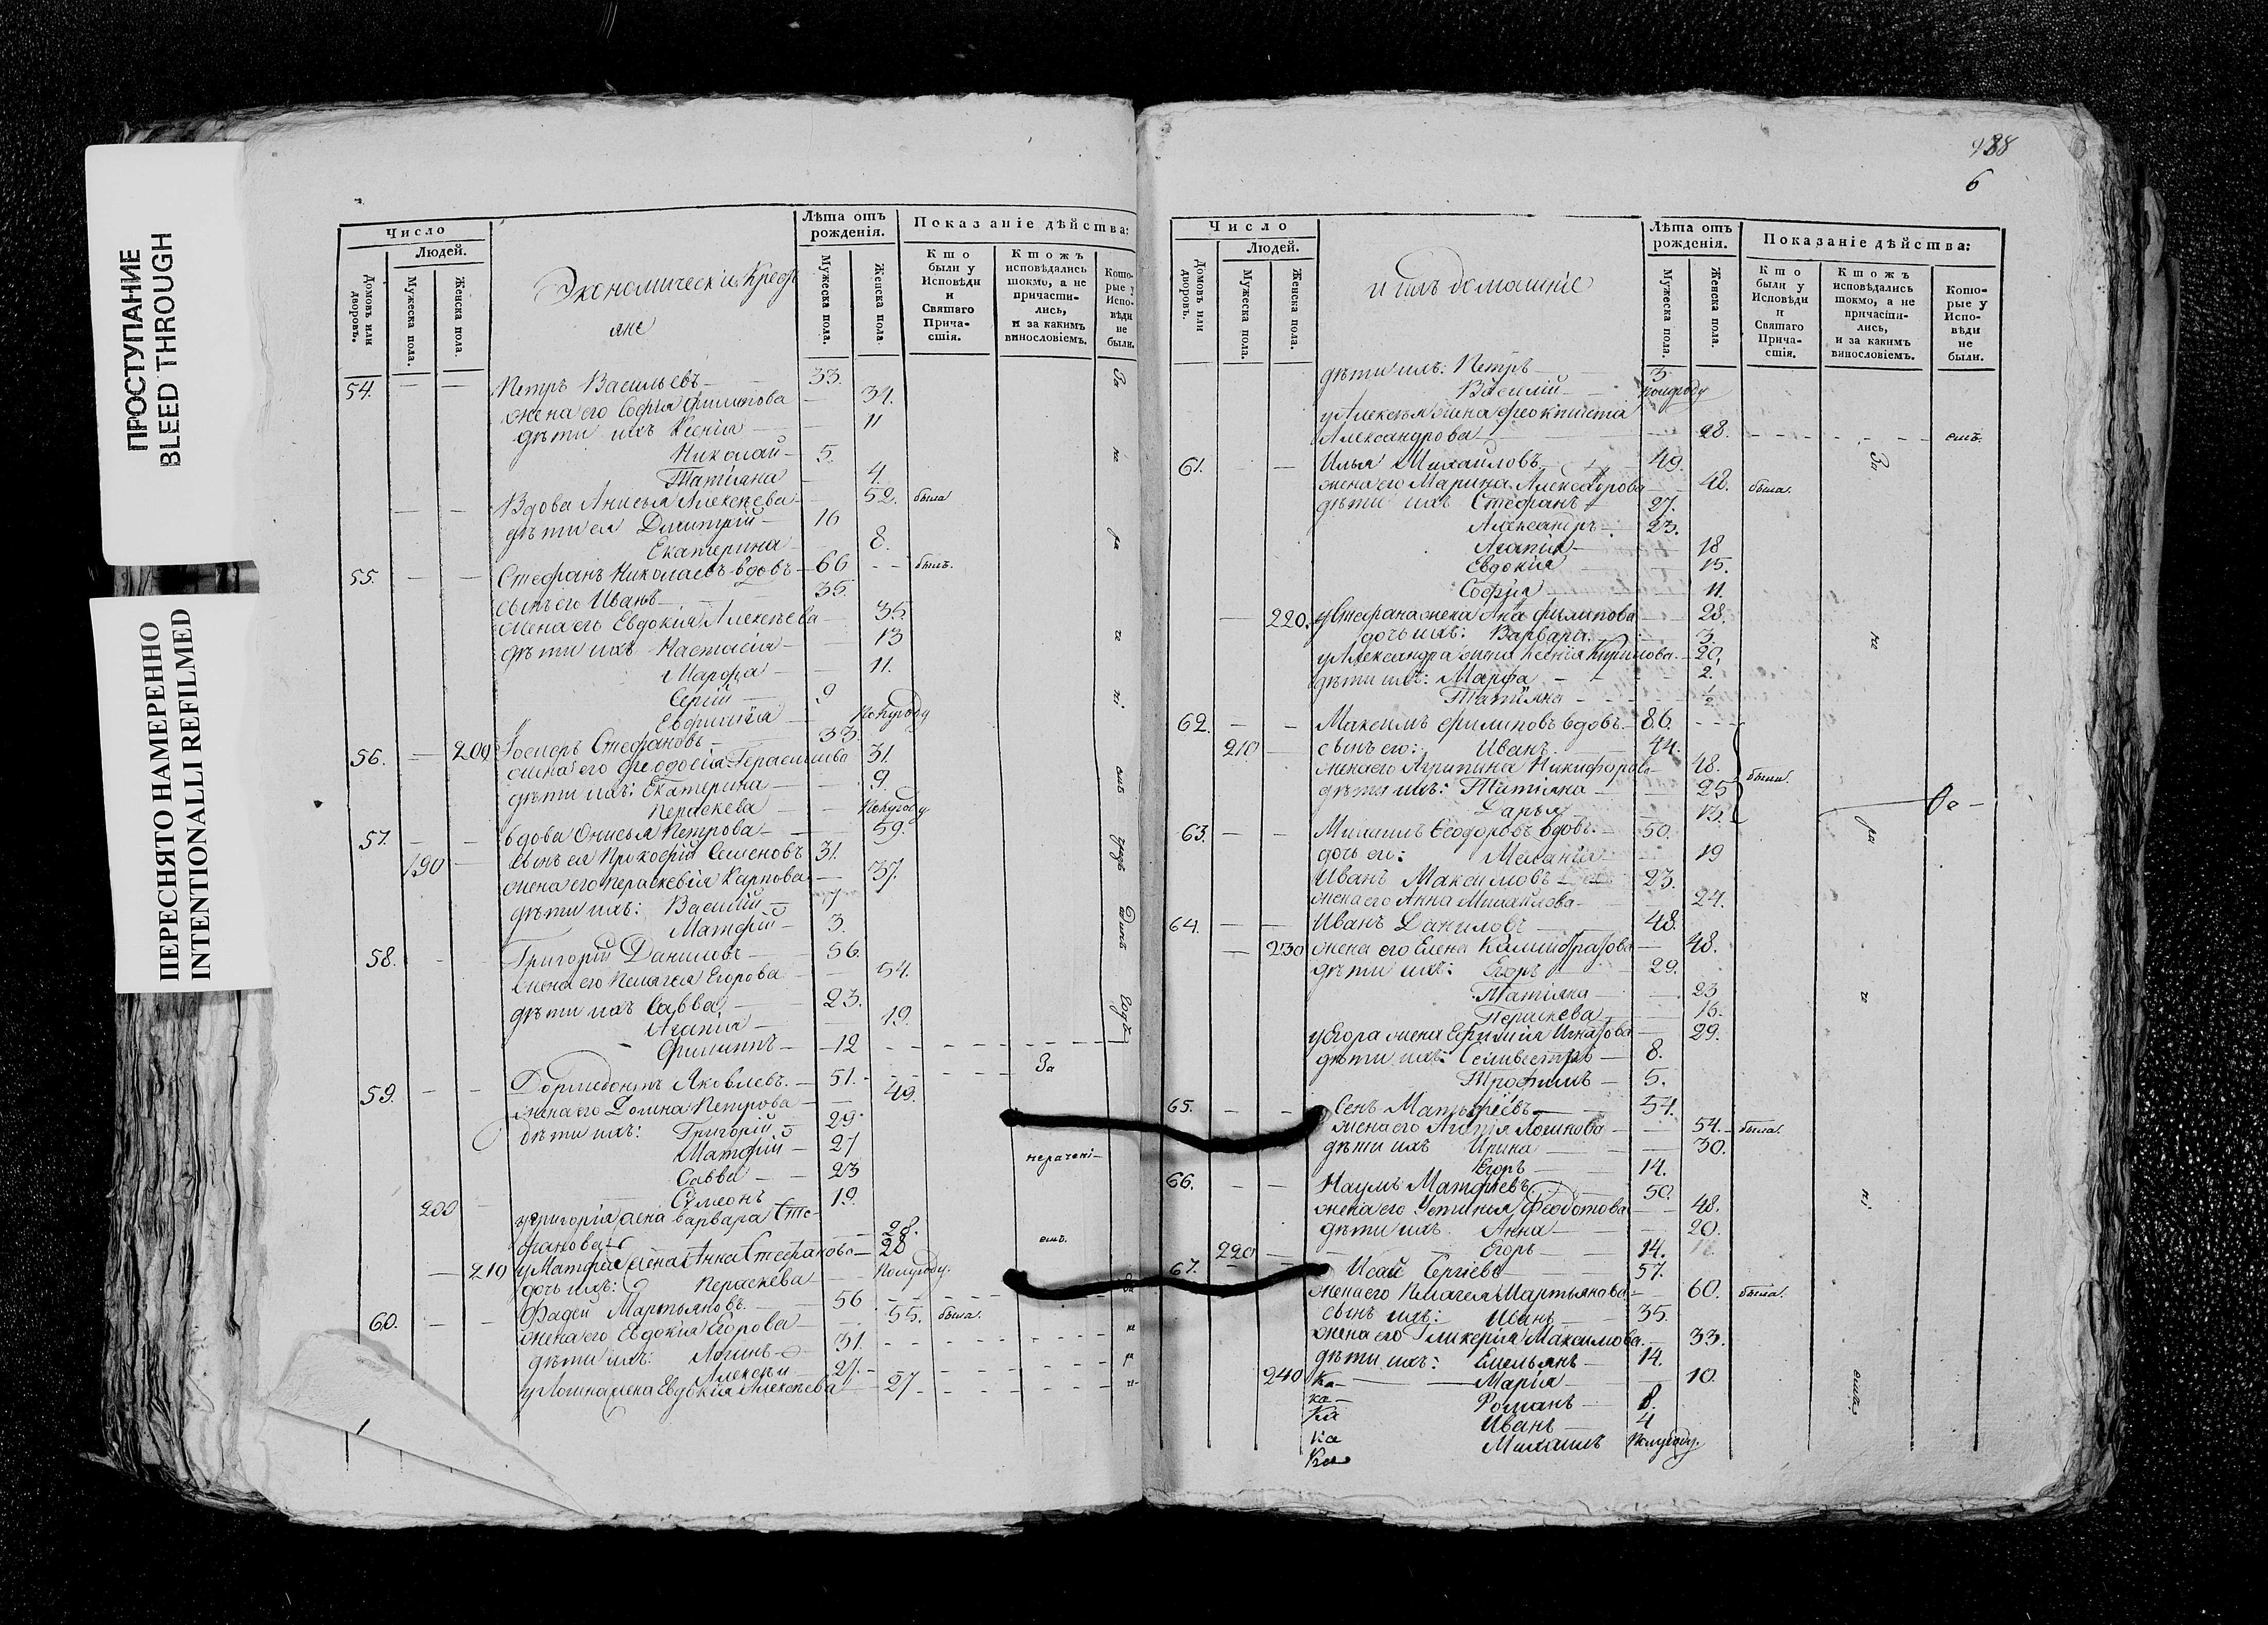 ПРОСТУПАНИЕ
BLEED THROUGH
ПЕРЕСНЯТО НАМЕРЕННО
INTENTIONALLI REFILMED
Число
Людей.
Домовъ или дворовъ.
Мужеска пола.
Женска пола.
Экономическіе Кресть
яне
Лѣта отъ рожденія.
Мужеска пола.
Женска пола.
Показаніе дѣйства:
Кто были у Исповѣди и Святаго Прича-стія.
Ктожъ исповѣдались токмо, а не причасти-лись, и за какимъ винословіемъ.
Кото-рые у Испо-вѣди не были.
54. — — Петръ Васильевъ — 33.
жена его Софья Филипова — 31.
дѣти ихъ Ксенія — 11
Николай — 5.
Татіана — 4.
— — Вдова Анисья Алексѣева — 52. была
дѣти ея Димитрій — 16
Екатерина 8.
55. — — Стефанъ Николаевъ вдовъ — 66 — - былъ.
сынъ его Иванъ — 35.
жена его Евдокія Алексѣева — 35.
дѣти ихъ Настасія — 13
Марфа — 11.
Сергій — 9
Евфимія — Полугоду
56. — 200 Ѳеодоръ Стефановъ — 33.
жена его Феодосія Герасимова 31.
дѣти ихъ: Екатерина — 9.
Пераскева — Полугоду
57. — — вдова Онисья Петрова — 59.
190 — сынъ ея Прокофій Семеновъ 31.
жена его Пераскевія Карпова — 37.
дѣти ихъ: Василій — 7
Матфій — 3.
58. — - Григорій Даниловъ — 56.
жена его Пелагея Егорова — 54.
дѣти ихъ Савва — 23.
Агапія — 19.
Филиппъ — 12
59. — — Дормедонтъ Яковлевъ. — 51.
жена его Домна Петрова — 49.
дѣти ихъ: Григорій — 29.
Матфій — 27
Савва — 23
Симеонъ 19.
200 — у Григорія жена варвара Сте-
фанова — 28.
у Матфія жена Анна Стефанова — 28
— 210 дочь ихъ: Пераскева — Полугоду.
60. — — Фадей Мартьяновъ. — 56
жена его Евдокія Егорова — 55. была.
дѣти ихъ: Логинъ — 31.
Алексѣй — 27.
у Логина жена Евдокія Алексѣева — 27
За
нерачені-
емъ.
488
6
Число
Людей.
Домовъ или дворовъ.
Мужеска пола.
Женска пола.
и ихъ домашніе
Лѣта отъ рожденія.
Мужеска пола.
Женска пола.
Показаніе дѣйства:
Кто были у Исповѣди и Святаго Прича-стія.
Ктожъ исповѣдались токмо, а не причасти-лись, и за какимъ винословіемъ.
Кото-рые у Испо-вѣди не были.
дѣти ихъ: Петръ — 3.
Василій — Полугоду
у Алексѣя жена Феоктиста
Александрова — 28. емъ.
61. — — Илья Михайловъ — 49.
жена его Марина Александрова — 48. была.
дѣти ихъ Стефанъ 27.
Александръ — 23.
Агапія — 18
Евдокія — 15.
Софія 11.
— 220. у Стефана жена Анна Филипова — 28.
дочь ихъ: Варвара — 3.
у Александра жена Ксенія Кирилова — 20.
дѣти ихъ: Марфа — 2.
Татіяна — ½
62. — — Максимъ Филиповъ вдовъ — 86.
210 — сынъ его: Иванъ — 44.
жена его Агрипина Никифорова 48. были.
дѣти ихъ: Татіана — 25
Дарья — 13.
63. — — Михаилъ Ѳеодоровъ вдовъ — 50.
дочь его: Меланія — 19
Иванъ Максимовъ — 23.
жена его Анна Михайлова — 24.
64. — — Иванъ Даниловъ — 48.
— 230 жена его Елена — 48.
дѣти ихъ: Егоръ — 29.
Татіяна — 23
Пераскева — 16.
у Егора жена Ефимія Игнатова — 29.
дѣти ихъ: Селивестръ — 8.
Трофимъ — 5.
65. — — Матвѣевъ — 54.
жена его Агафія Логинова — 54. была.
дѣти ихъ Ирина — 30.
Егоръ — 14.
66. — — Наумъ Матфіевъ — 50.
жена его Устинья Феодотова — 48.
дѣти ихъ Анна — 20.
220 — Егоръ — 14.
67. — Исай Сергіевъ — 57.
жена его Пелагея Мартьянова — 60. была.
сынъ ихъ: Иванъ — 35.
жена его Гликерія Максимова — 33.
дѣти ихъ: Емельянъ — 14.
240 Марія — 10.
Романъ 8.
Иванъ 4
Михаилъ Полугоду.